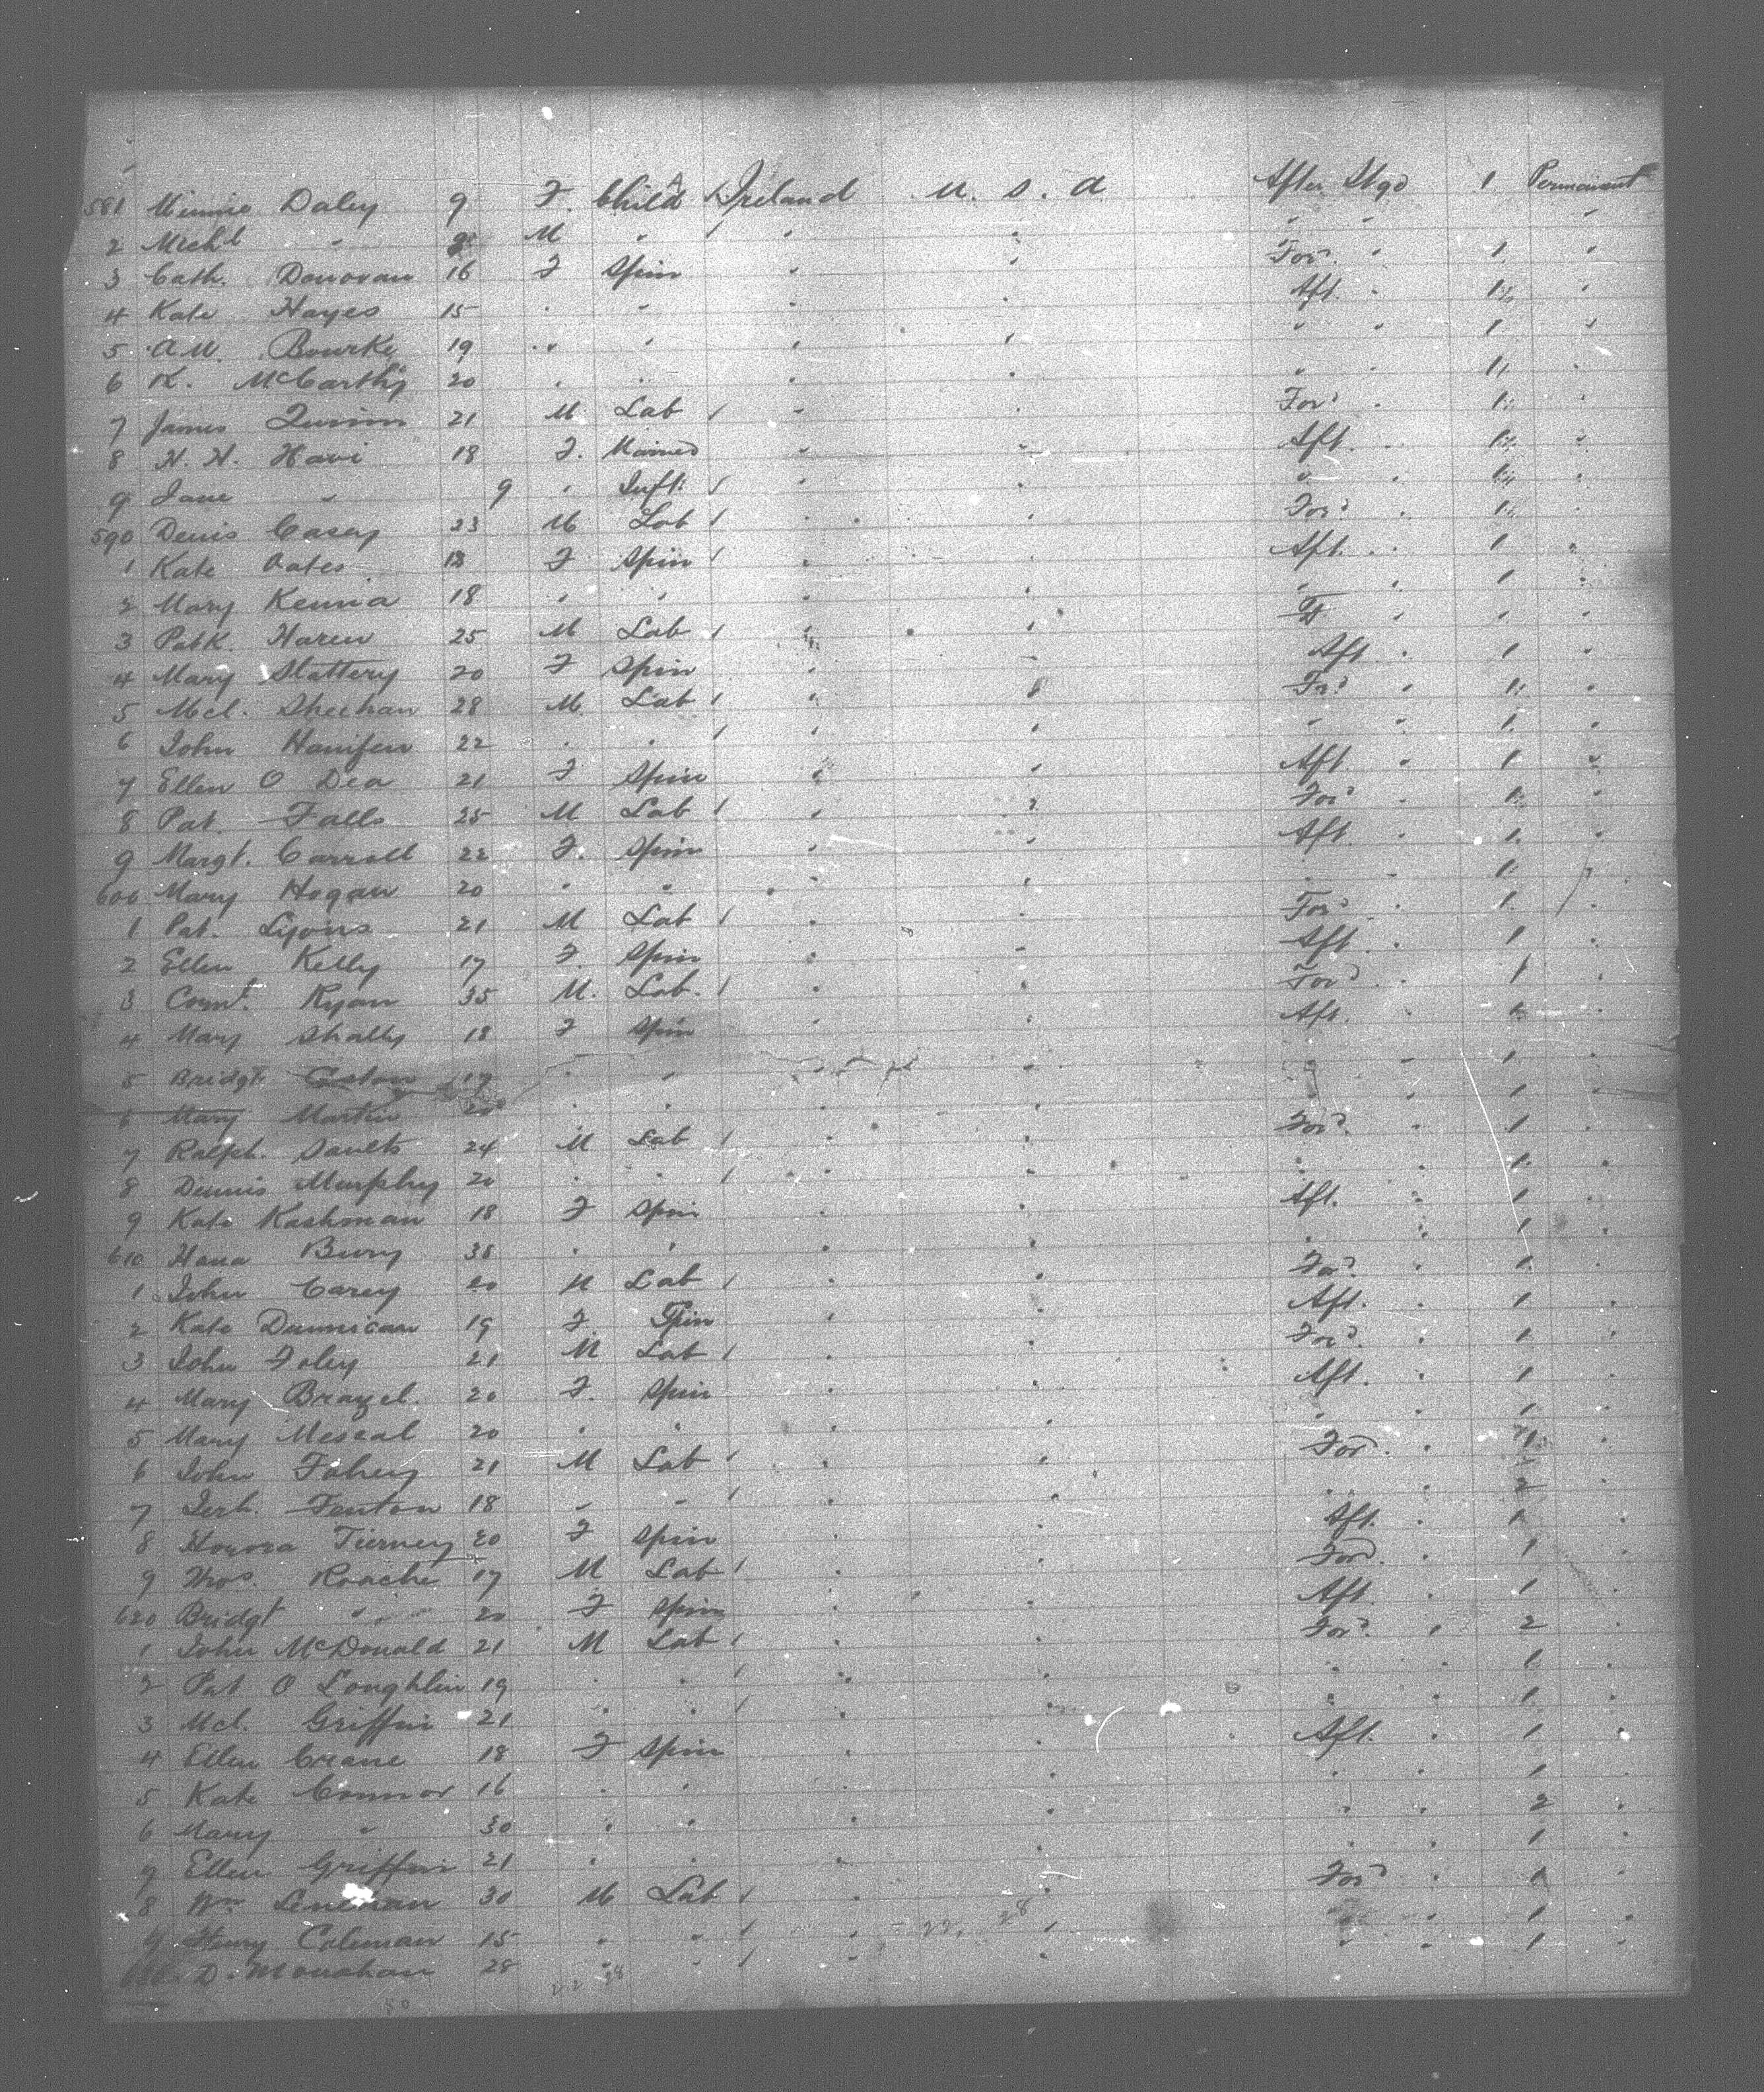 581 Minnie Daley 9 F. Child Ireland U. S. A After Stgd 1 Permanent
2 Michl " M " " " " " "
3 Cath. Donovan 16 F Spin " " For. " 1 "
4 Kate Hayes 15 " " " " Aft. " 1 "
5 A.M. Bourke 19 " " " " " " 1 "
6 K. McCarthy 20 " " " " " " 1 "
7 James Quinn 21 M Lab " " Ford " 1
8 H. H. Havi 18 F. Married " " Aft. " 1 "
9 Jane " 9 " Inft. " " " " 1 "
590 Denis Casey 23 M Lab " " Ford " 1 "
1 Kate Oates 18 F Spin " " Aft. " 1 "
2 Mary Kenna 18 " " " " " " 1 "
3 Patk. Haren 25 M Lab " " " " "
4 Mary Slattery 20 F Spin " " Aft " 1 "
5 Mcl. Sheehan 28 M Lab " " Ford " 1 "
6 John Hanifen 22 " " " " " " 1 "
7 Ellen O Dea 21 F Spin " " Aft " 1 "
8 Pat. Falls 25 M Lab " " Ford " 1 "
9 Margt. Carroll 22 F. Spin " " Aft. " 1 "
600 Mary Hogan 20 " " " " " " 1 "
1 Pat. Lyons 21 M Lab " " Ford " 1 "
2 Ellen Kelly 17 F. Spin " " Aft " 1 "
3 Corns. Ryan 35 M. Lab. " " Ford " 1 "
4 Mary Shally 18 F Spin " " Aft. " 1 "
5 Bridgt. 17 " " " " " " 1 "
6 Mary Martin " " " " " " 1 "
7 Ralph. Saults 24 M Lab " " Ford " 1 "
8 Dennis Murphy 20 " " " " " " 1 "
9 Kate Kashman 18 F Spin " " Aft. " 1 "
610 Hana Bury 35 " " " " " " 1 "
1 John Carey 20 M Lab " " Ford " 1 "
2 Kate Dunnican 19 F Spin " " Aft. " 1 "
3 John Foley 21 M Lab " " Ford " 1 "
4 Mary Brazel. 20 F. Spin " " Aft. " 1 "
5 Mary Meseal 20 " " " " " " 1 "
6 John Fahey 21 M Lab " " Ford " 1 "
7 Jerh. Fenton 18 " " " " " " 2 "
8 Honora Tierney 20 F Spin " " Aft. " 1 "
9 Thos. Roache 17 M Lab " " Ford. " 1 "
620 Bridgt " 20 F Spin " " Aft " 1 "
1 John McDonald 21 M Lab " " Ford " 2 "
2 Pat O Loughlin 19 " " " " " " 1 "
3 Mcl. Griffin 21 " " " " " " 1 "
4 Ellen Crane 18 F Spin " " Aft. " 1 "
5 Kate Connor 16 " " " " " " 1 "
6 Mary " 30 " " " " " " 2 "
7 Ellen Griffin 21 " " " " " " 1 "
8 Wm Lenehan 30 M Lab " " Ford " 1 "
9 Henry Coleman 15 " " " " " " 1 "
D. Monahan 28 " " " " " " 1 "